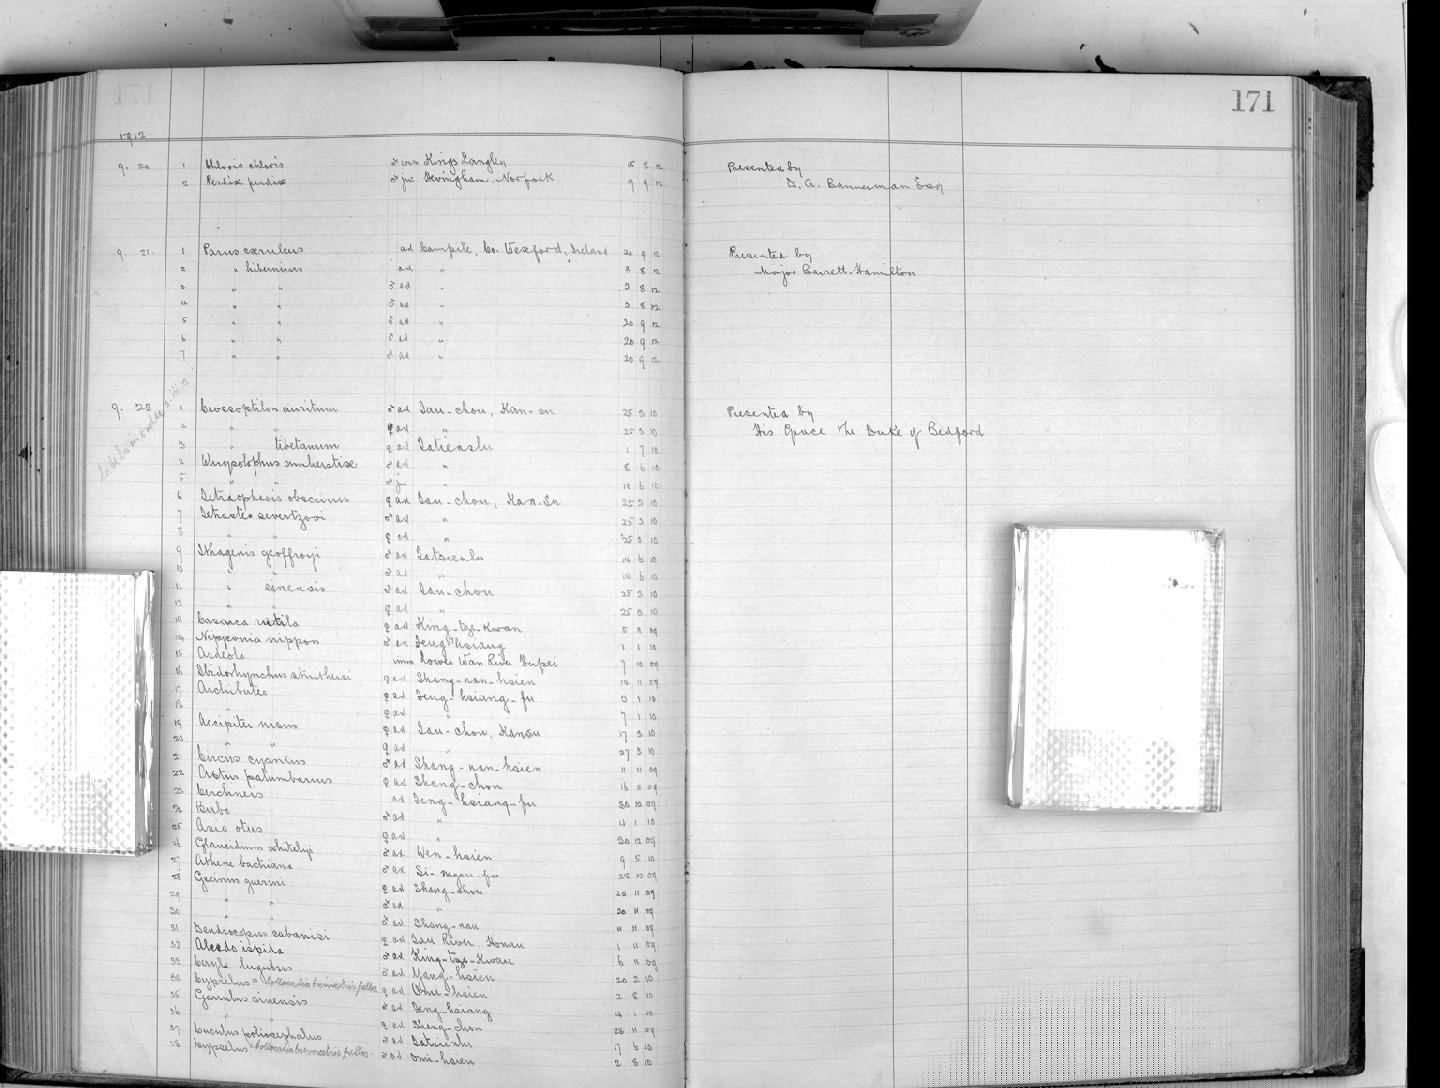 171
1912
9. 20 1 Chloris chloris ♂ imm Kings Langley 15 5 12 Presented by
2 Perdix perdix ♂ juv Hevingham, Norfolk 9 9 12 D. A. Bannerman Esq
9. 21. 1 Parus cæruleus ad Campile, Co. Wexford, Ireland 20 9 12 Presented by
2 " hibernicus ad " 3 8 12 Major Barrett-Hamilton
3 " " ♂ ad " 3 8 12
4 " " ♂ ad " 3 8 12
5 " " ♂ ad " 20 9 12
6 " " ♂ ad " 20 9 12
7 " " ♂ ad " 20 9 12
9. 28 1 Crossoptilon auritum ♂ ad Tau-chou, Kan-su 25 3 10 Presented by
2 " " ♀ ad " 25 3 10 His Grace the Duke of Bedford
3 " tibetanum ♀ ad Tatsienlu 1 7 10
4 Chrysolophus amherstiæ ♂ ad " 8 6 10
5 " " ♂ j " 10 6 10
6 Tetraophasis obscurus ♀ ad Tau-chou, Kan-Su 25 3 10
7 Tetrastes severtzovi ♂ ad " 25 3 10
8 " " ♀ ad " 25 3 10
9 Ithagenis geoffroyi ♂ ad Tatsienlu 14 6 10
10 " " ♂ ad " 10 6 10
11 " sinensis ♂ ad Tau-chou 25 3 10
12 " " ♀ ad " 25 3 10
13 Casarca rutila ♀ ad King-tze-Kwan 5 11 09
14 Nipponia nippon ♂ ad Feng-hsiang 1 1 10
15 Ardeola imm Lower Han River Hupei 7 10 09
16 Ibidorhynchus struthersi ♀ ad Shang-nan-hsien 14 11 09
17 Archibuteo ♀ ad Feng-hsiang-fu 3 1 10
18 " ♀ ad " 7 1 10
19 Accipiter nisus ♀ ad Tau-chou, Kansu 17 3 10
20 " " ♀ ad " 27 3 10
21 Circus cyaneus ♂ ad Shang-nan-hsien 11 11 09
22 Astur palumbarius ♀ ad Shang-chou 16 11 09
23 Cerchneis ad Feng-hsiang-fu 30 12 09
24 Bubo ♂ ad " 4 1 10
25 Asio otus ♀ ad " 30 12 09
26 Glaucidium whitelyi ♂ ad Wen-hsien 9 5 10
27 Athene bactriana ♂ ad Si-ngan-fu
28 Gecinus guerini ♀ ad Shang-chou 20 11 09
29 " " ♂ ad " 20 11 09
30 " " ♂ ad Shang-nan 11 11 09
31 Dendrocopus cabanisi ♀ ad Tau River, Honan 1 11 09
32 Alcedo ispida ♂ ad King-tze-Kwan 6 11 09
33 Ceryle lugubris ♂ ad Yang-hsien 20 2 10
34 Cypselus = Collocalia brevirostris pellos ♀ ad Omi-hsien 2 8 10
35 Garrulus sinensis ♂ ad Feng-hsiang 4 1 10
36 " " ♀ ad Shang-chou 28 11 09
37 Cuculus poliocephalus ♂ ad Tatsienlu 7 6 10
38 Cypselus = Collocalia brevirostris pellos ♂ ad Omi-hsien 2 8 10